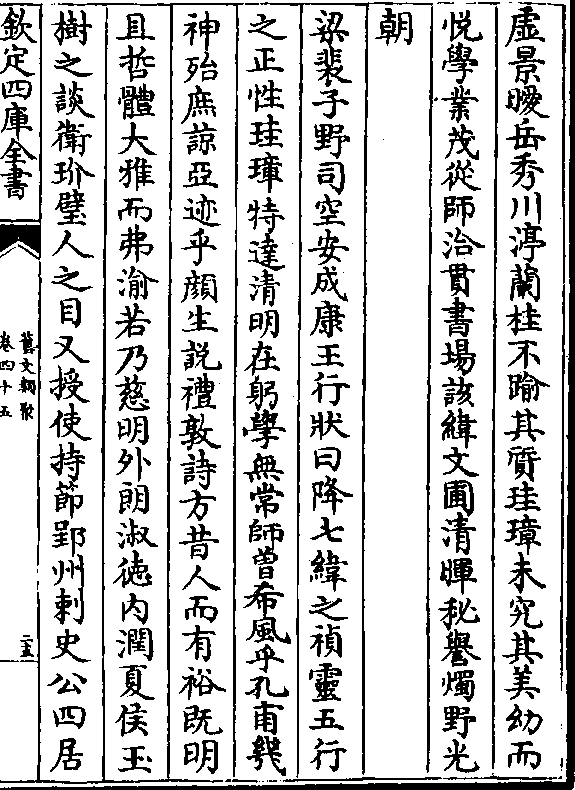 虚景曖岳秀川渟蘭桂不踰其質珪璋未究其美幼而
悦學業茂從師洽貫書場該緯文圃清暉秘譽燭野光
朝
梁裴子野司空安成康王行狀曰降七緯之禎靈五行
之正性珪璋特達清明在躬學無常師曽希風乎孔甫幾
神殆庶諒亞迹乎顔生説禮敦詩方昔人而有裕既明
且哲體大雅而弗渝若乃慈明外朗淑徳内潤夏侯玉
樹之談衛玠璧人之目又授使持節郢州刺史公四居
欽定四庫全書
藝文類聚
卷四十五
二五